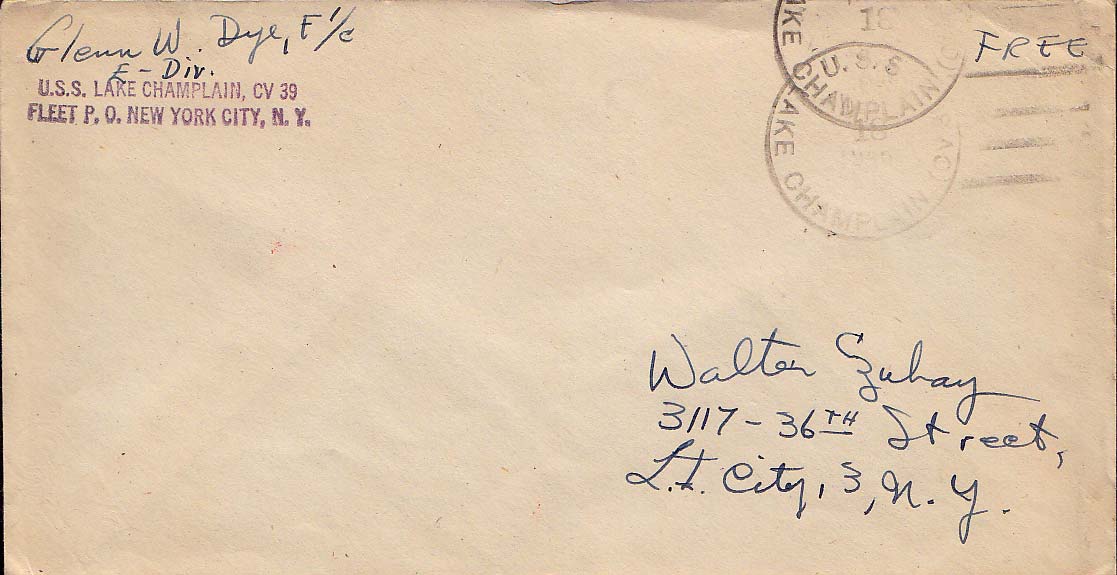 Glenn W. Dye, F 1/c
E - Div.
U.S.S. LAKE CHAMPLAIN, CV 39
FLEET P. O. NEW YORK CITY, N. Y.
16
U. S. S
LAKE CHAMPLAIN
18
LAKE CHAMPLAIN (CV
FREE
Walter Szuhay
3117 - 36TH Street,
L.I. City, 3, N. Y.